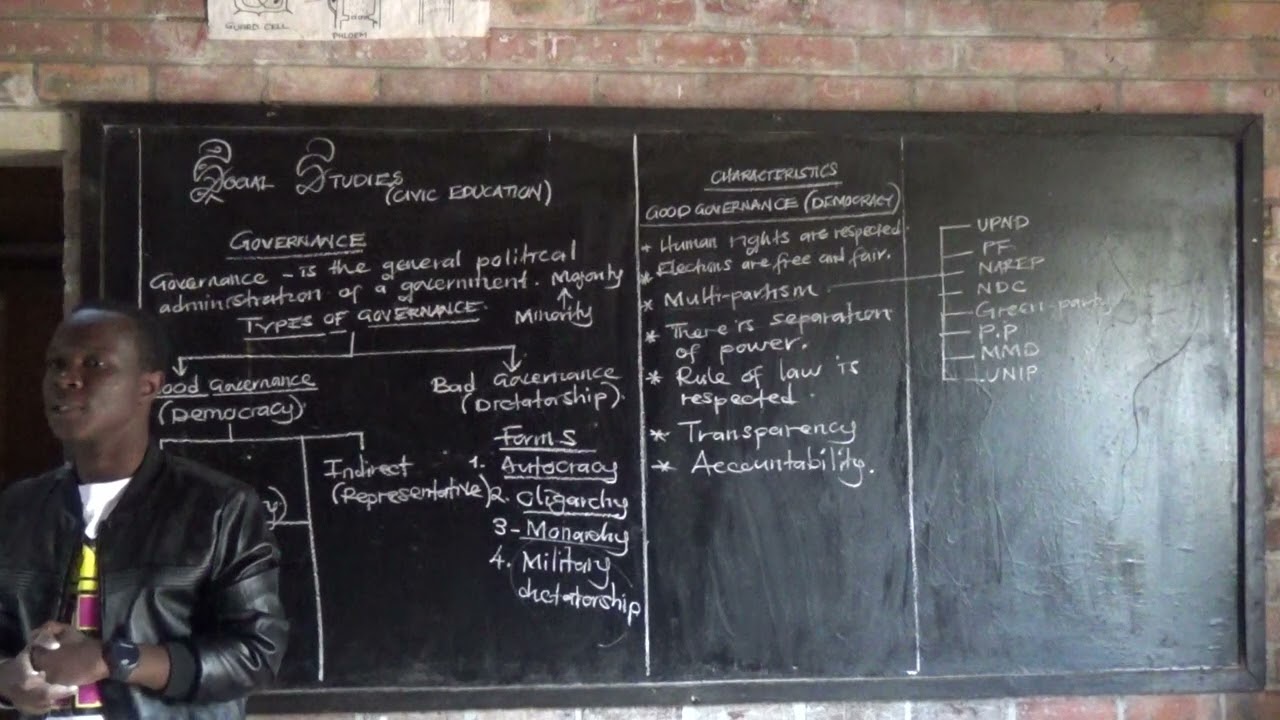 GUARD CELL
PHLOEM
SOCIAL STUDIES
(CIVIC EDUCATION)
GOVERNANCE
Governance - is the general political
administration of a government. Majority
Minority
TYPES OF GOVERNANCE.
ood Governance
(Democracy)
Bad Governance
(Dictatorship).
Indirect
(Representative)
y)
Forms
1. Autocracy
2. Oligarchy
3 - Monarchy
4. Military
dictatorship
CHARACTERISTICS
GOOD GOVERNANCE (DEMOCRACY)
* Human rights are respected.
* Elections are free and fair.
* Multi-partism
* There is separation
of power.
* Rule of law is
respected.
* Transparency
* Accountability.
UPND
PF
NAREP
NDC
Green-party
P.P
MMD
UNIP